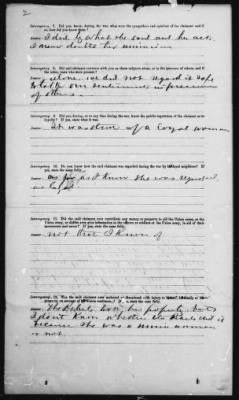 2
Interrogatory 7. Did you know, during the war what were the sympathies and opinions of the claimant and if
so, how did you know them?
I did by what she said and her acts,
I never doubted her unionism
Interrogatory 8. Did said claimant converse with you on these subjects alone, or in the presence of others, and if
the latter, name the persons present?
alone, we did not regard it safe
to talk our sentiments in presence
of others.
Interrogatory 9. Did you, during, or at any time during the war, know the public reputation of the claimant as to
loyalty? If so, state what it was.
It was that of a loyal woman
Interrogatory 10. Do you know how the said claimant was regarded during the war by loyal neighbors? If
yes, state the same fully.
as far as I know she was regarded
as loyal
Interrogatory 11. Did the said claimant ever contribute any money or property to aid the Union cause, or the
Union army, or did she ever give information to the officers or soldiers of the Union army, in aid of their
movements and cause? If so, state the same fully.
not that I know of
Interrogatory 12. Was the said claimant ever molested or threatened with injury to
property, on account of Union sentiments? If so, state the same fully.
the Rebels took her property but
I don't know whether the Rebels did it
because she was a union woman
or not.